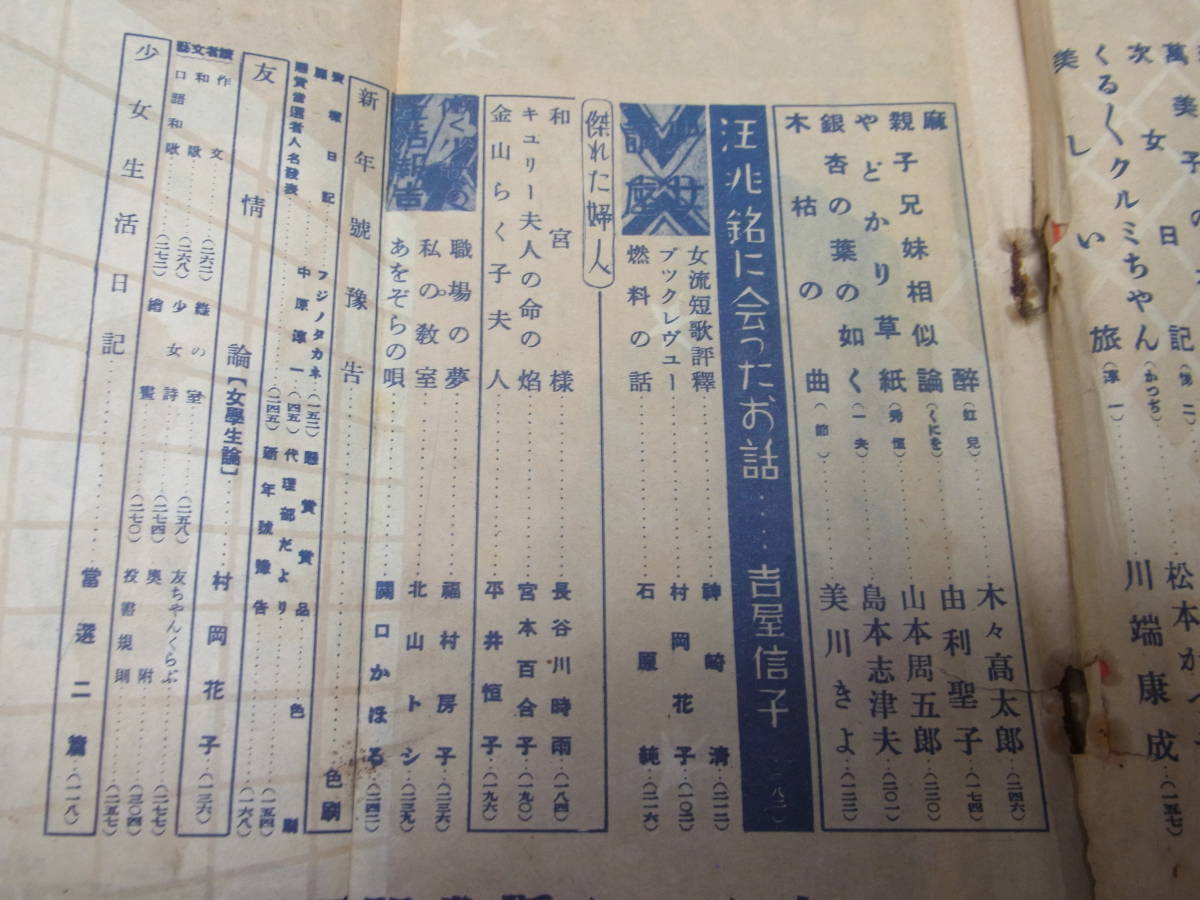 美しい旅(淳一)……川端康成(一五七)
くる〳〵クルミちやん(かつぢ)……松本か
次女日記
萬美子の
麻酔(虹兒)……木々高太郎(二四六)
親子兄妹相似論(くにを)……由利聖子(一七四)
やどかり草紙(秀恒)……山本周五郎(二二〇)
銀杏の葉の如く(一夫)……島本志津夫(二〇一)
木枯の曲(節)……美川きよ(一二二)
汪兆銘に会つたお話……吉屋信子(八二)
少女講座
女流短歌評釋……神崎清(二一二)
ブツクレヴユー……村岡花子(一〇二)
燃料の話……石原純(二一六)
傑れた婦人
和宮様……長谷川時雨(一八四)
キュリー夫人の命の焰……宮本百合子(一九〇)
金山らく子夫人……平井恒子(一九六)
働く少女の生活報告
職場の夢……福村房子(二三六)
私の教室……北山トシ(二三九)
あをぞらの唄……関口かほる(二四二)
新年號豫告……色刷
寶塚日記……フジノタカネ(一五二)
懸賞賞品……色刷
懸賞當選者人名發表……(二四五)
代理部だより……(一五四)
友情論【女學生論】……村岡花子(一三六)
中原淳一(四五)
新年號豫告……(一六八)
讀者文藝
作文……(二六二)
和歌……(二六八)
口語和歌……(二七二)
綴の室……(二五八)
少女詩……(二七四)
繪畫……(二七〇)
友ちやんくらぶ……(二七七)
奥附……(三〇四)
投書規則……(二五七)
少女生活日記……當選二篇(一一八)